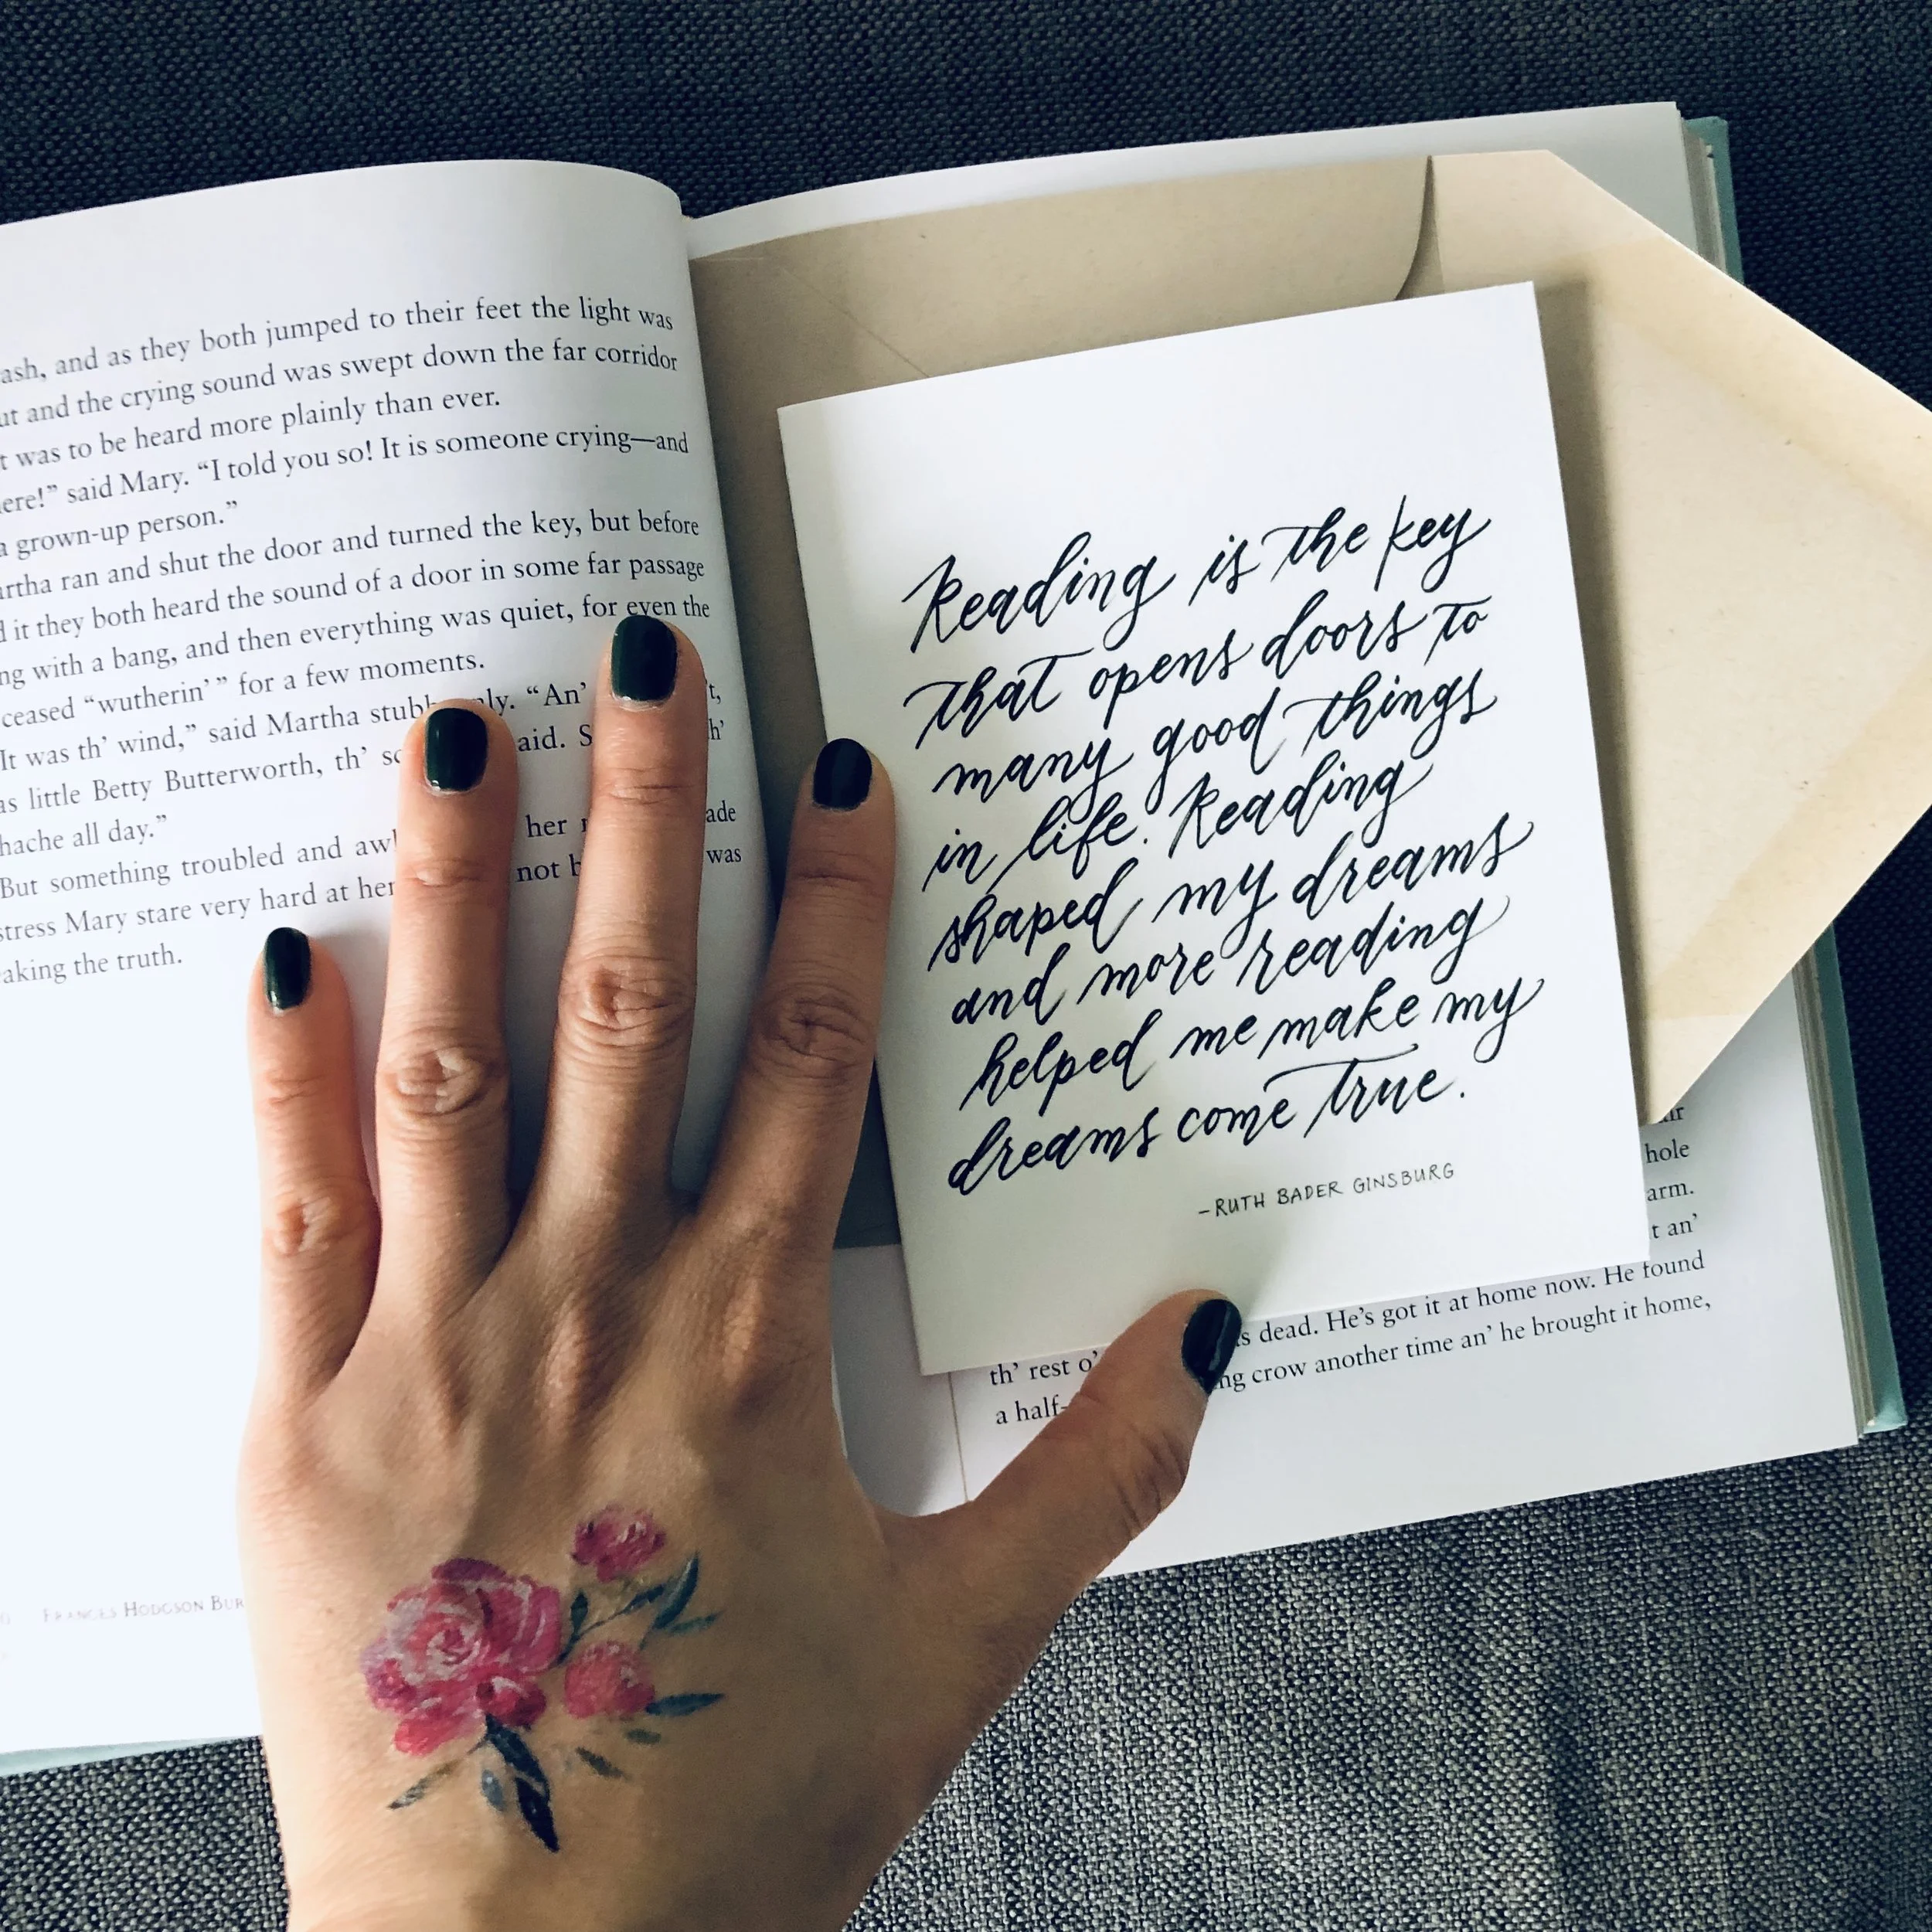 ash, and as they both jumped to their feet the light was
ut and the crying sound was swept down the far corridor
t was to be heard more plainly than ever.
ere!” said Mary. “I told you so! It is someone crying—and
a grown-up person.”
rtha ran and shut the door and turned the key, but before
d it they both heard the sound of a door in some far passage
ng with a bang, and then everything was quiet, for even the
ceased “wutherin’” for a few moments.
It was th’ wind,” said Martha stubb ly. “An’ t,
as little Betty Butterworth, th’ sc aid. S h’
hache all day.”
But something troubled and aw her ade
stress Mary stare very hard at her not b was
aking the truth.
FRANCES HODGSON BUR
Reading is the key
that opens doors to
many good things
in life. Reading
shaped my dreams
and more reading
helped me make my
dreams come true.
–RUTH BADER GINSBURG
hole
arm.
t an’
s dead. He’s got it at home now. He found
th’ rest o’ ng crow another time an’ he brought it home,
a half-